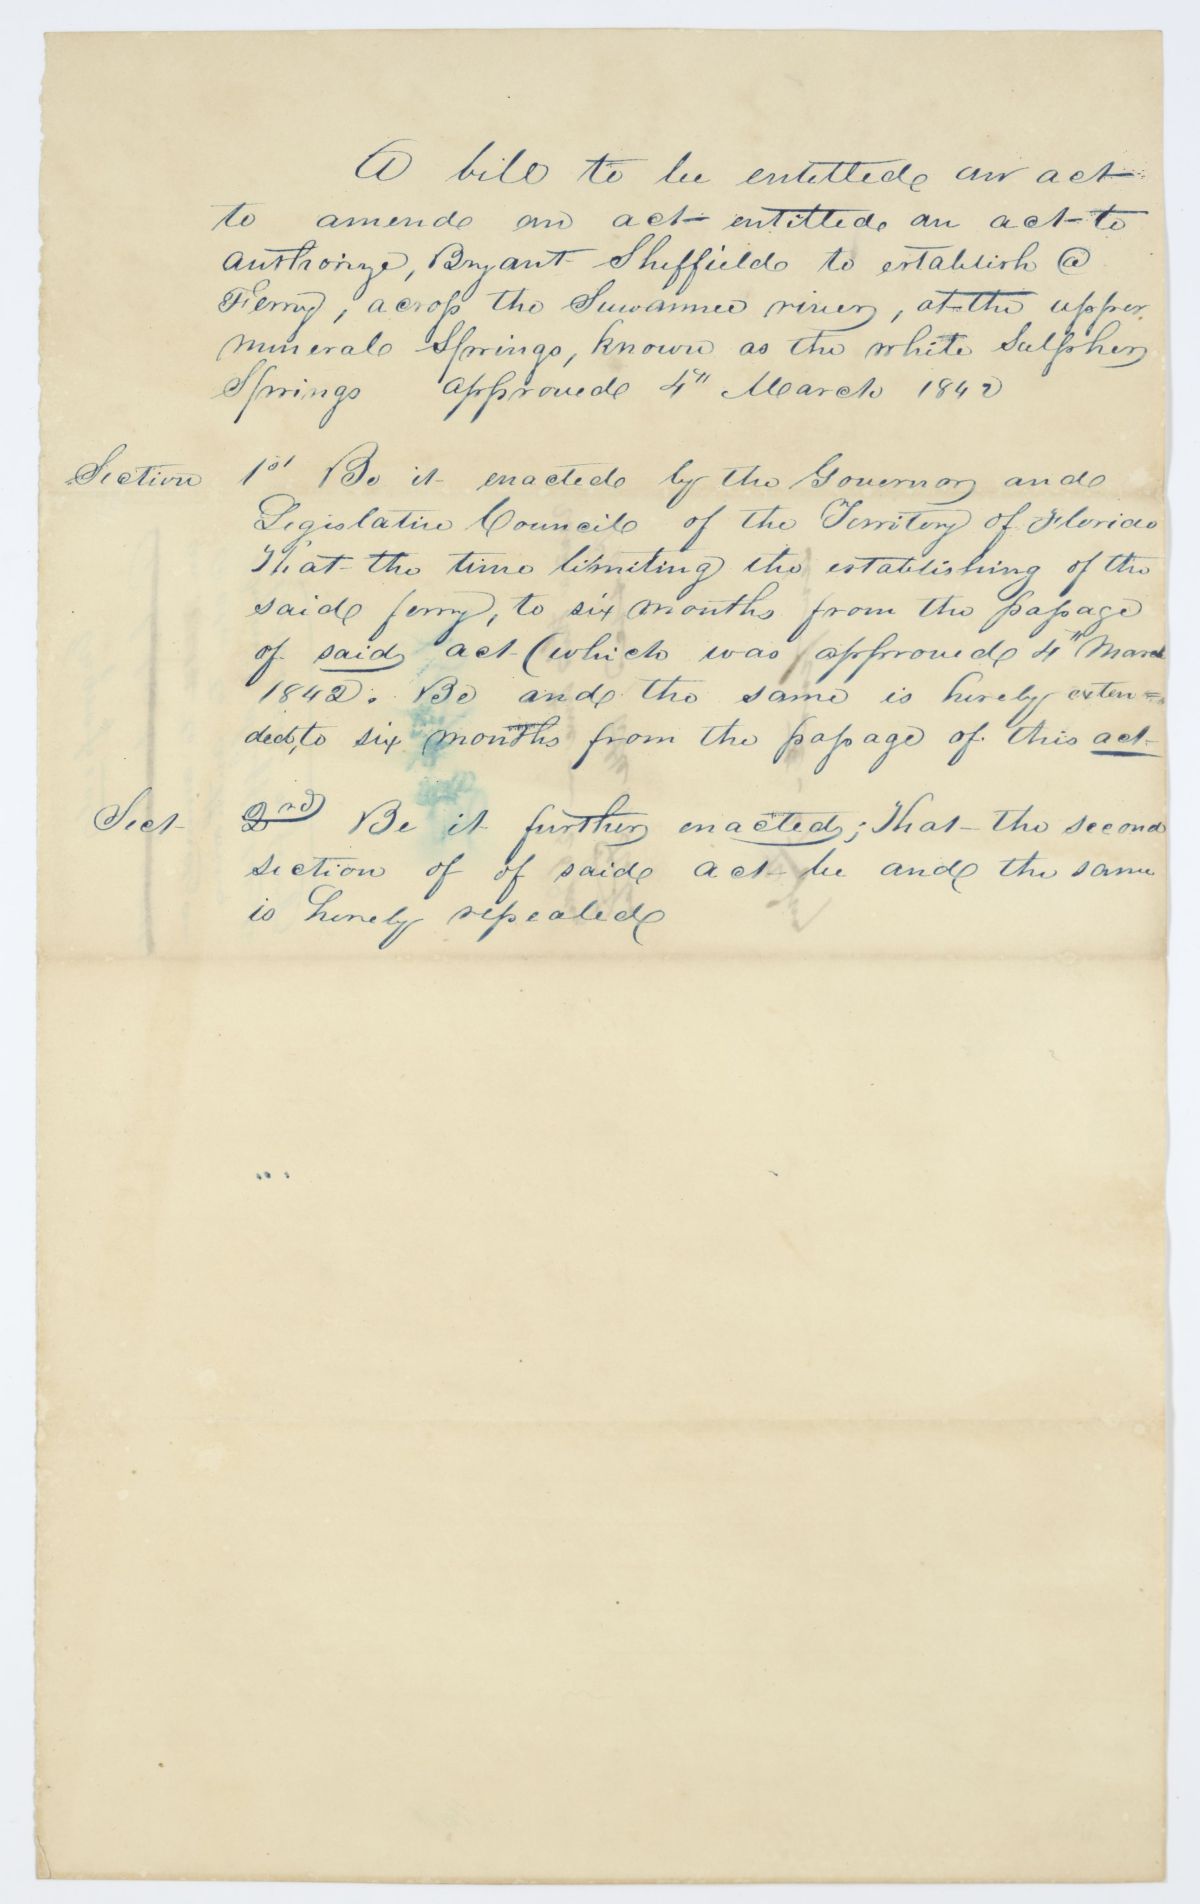 A bill to be entitled an act
to amend an act entitled an act to
authorize, Bryant Sheffield to establish a
Ferry, across the Suwannee river, at the upper
mineral Springs, known as the white Sulpher
Springs approved 4th March 1842
Section 1st Be it enacted by the Governor and
Legislative Council of the Territory of Florida
That the time limiting the establishing of the
said ferry, to six months from the passage
of said act (which was approved 4th March
1842. Be and the same is hereby exten=
ded, to six months from the passage of this act
Sect 2nd Be it further enacted; That the second
section of of said act be and the same
is hereby repealed